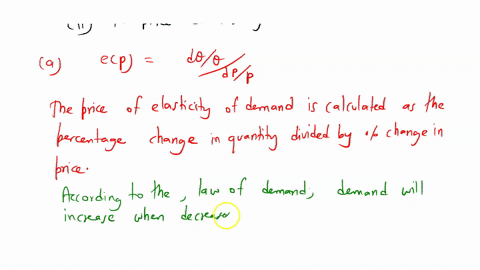 (a) e(p) = dθ/θ / dP/P
The price of elasticity of demand is calculated as the
percentage change in quantity divided by % change in
price.
According to the, law of demand, demand will
increase when decrease